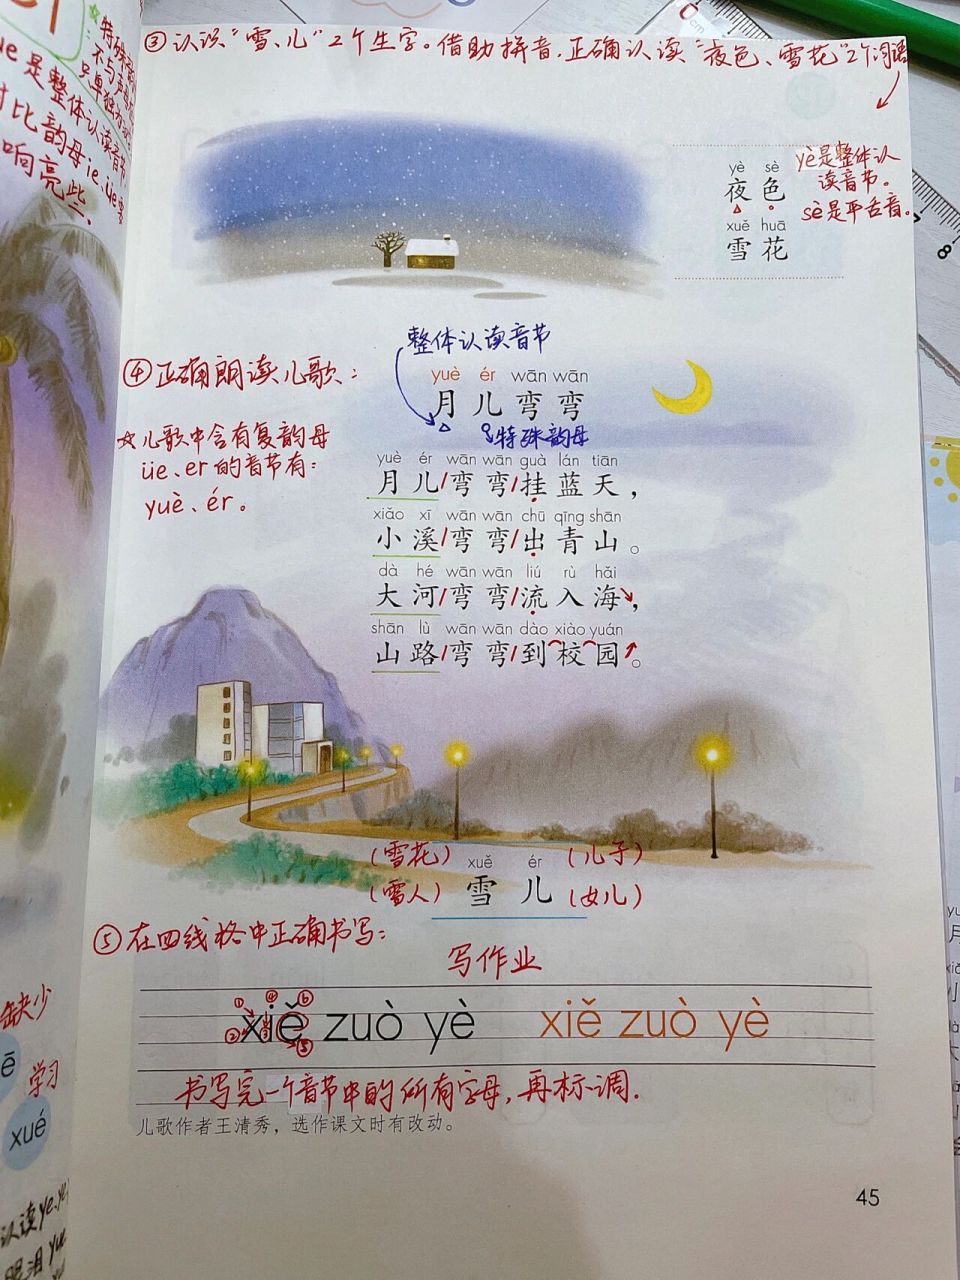 ③认识“雪、儿”2个生字。借助拼音,正确认读“夜色、雪花”2个词语
特殊
不与声母
只单独
ue是整体认读音节,
对比韵母ie、üe要
响亮些。
yè sè
夜色
xuě huā
雪花
yè是整体认
读音节。
sè是平舌音。
整体认读音节
④正确朗读儿歌:
yuè ér wān wān
月儿弯弯
特殊韵母
☆儿歌中含有复韵母
üe、er的音节有:
yuè、ér。
yuè ér wān wān guà lán tiān
月儿/弯弯/挂蓝天,
xiǎo xī wān wān chū qīng shān
小溪/弯弯/出青山。
dà hé wān wān liú rù hǎi
大河/弯弯/流入海,
shān lù wān wān dào xiào yuán
山路/弯弯/到校园。
(雪花) xuě ér (儿子)
(雪人) 雪儿 (女儿)
⑤在四线格中正确书写:
写作业
① ④ ⑥
xiě zuò yè xiě zuò yè
② ③ ⑤
书写完一个音节中的所有字母,再标调.
儿歌作者王清秀,选作课文时有改动。
45
缺少
ē
学习
xué
认读ye、ye
cm
8